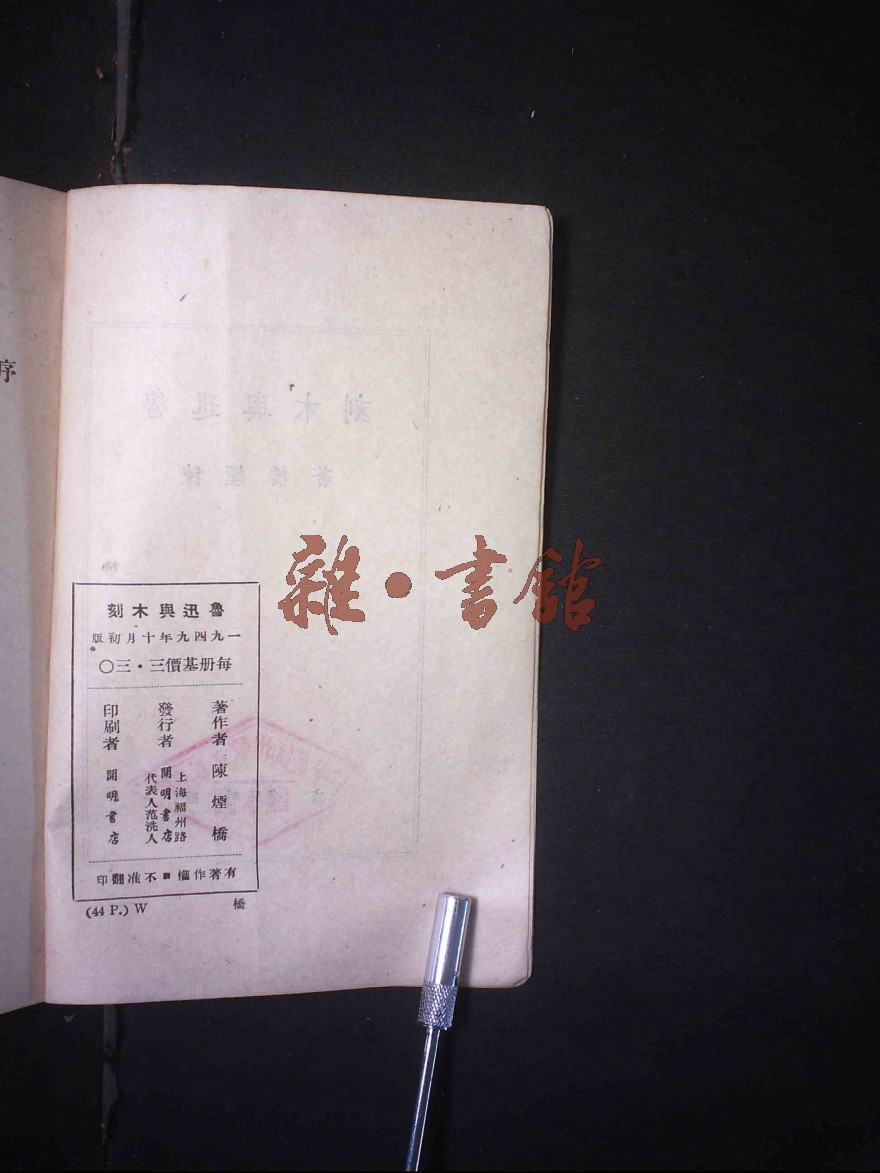 序
雜·書館
魯迅與木刻
一九四九年十月初版
每册基價三·三〇
著作者 陳煙橋
發行者 上海福州路
開明書店
代表人范洗人
印刷者 開明書店
有著作權■不准翻印
(44 P.) W 橋